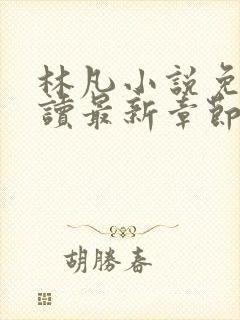 林凡小説免
讀最新章節
胡勝春